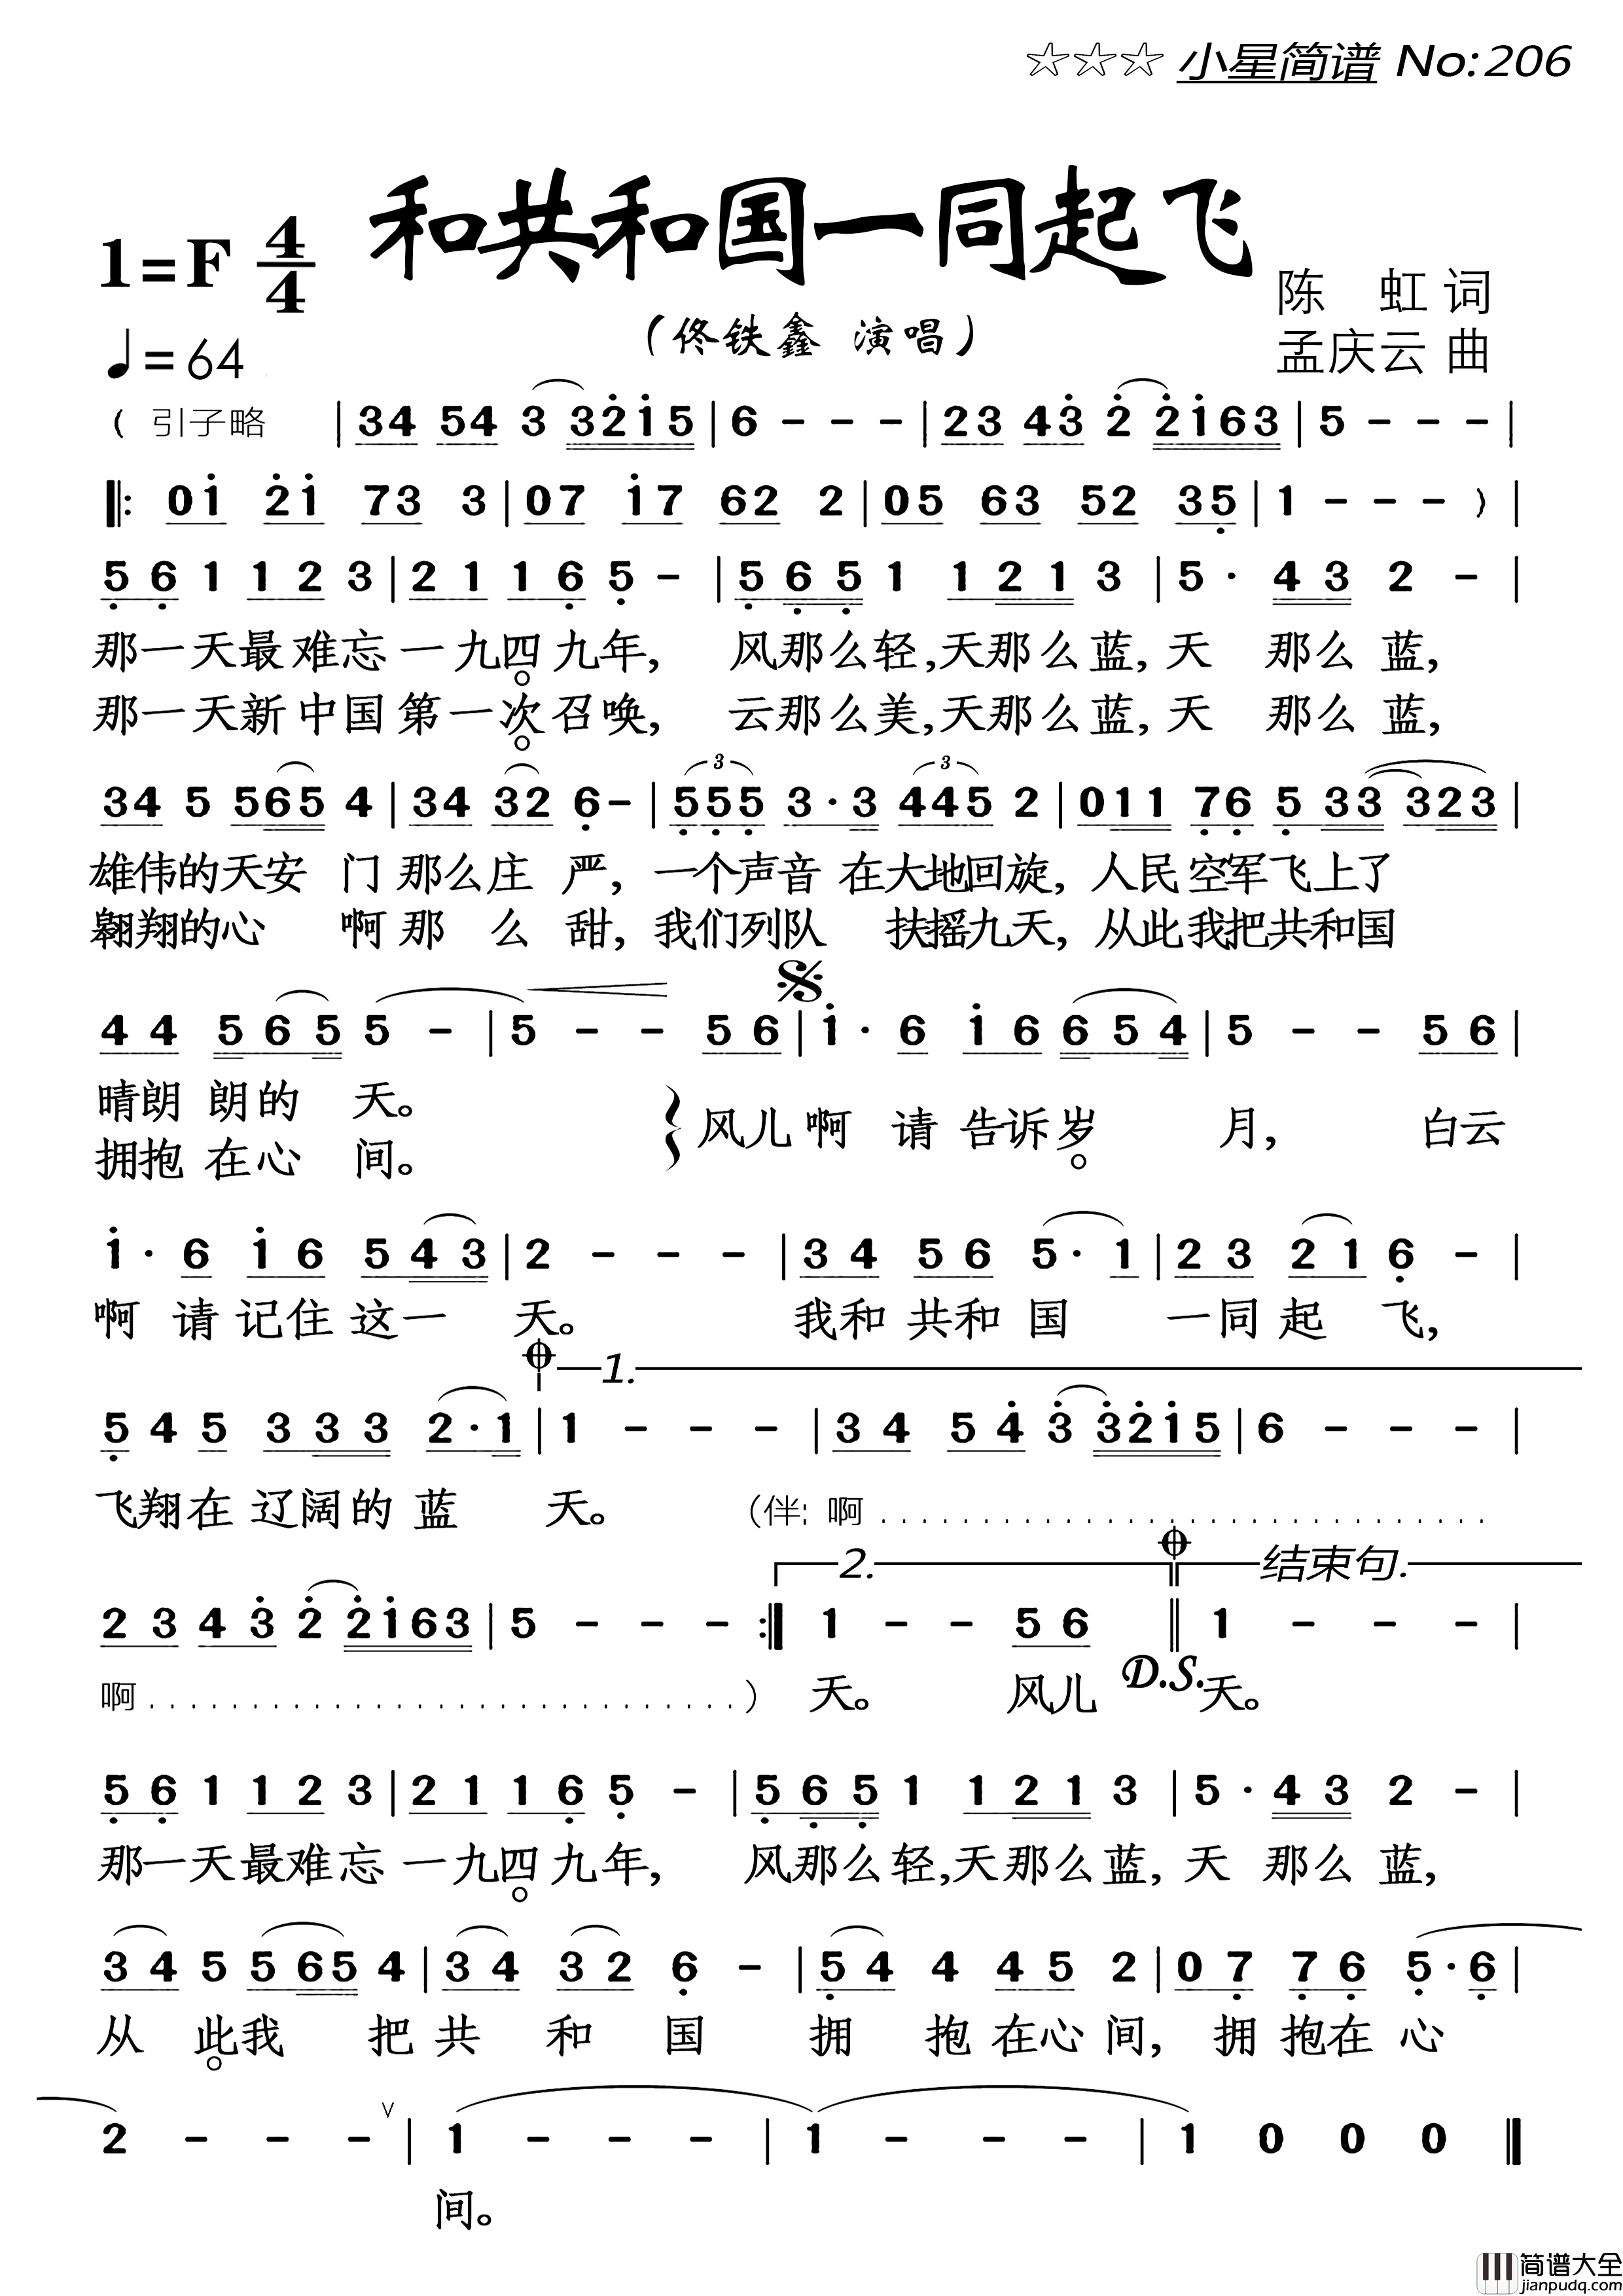 ☆☆☆ 小星简谱 No:206
和共和国一同起飞
1=F 4/4
陈 虹 词
(佟铁鑫 演唱)
孟庆云 曲
♩=64
( 引子略 | 34 54 3 32̇i̇5 | 6 - - - | 23 43̇ 2̇ 2̇i̇63 | 5 - - - |
‖: 0i̇ 2̇i̇ 73 3 | 07 i̇7 62 2 | 05 63 52 35̣ | 1 - - - ) |
5̣ 6̣ 1 1 2 3 | 2 1 1 6̣ 5̣ - | 5̣ 6̣ 5̣ 1 1 2 1 3 | 5 · 4 3 2 - |
那一天最难忘一九四九年, 风那么轻,天那么蓝,天 那么 蓝,
那一天新中国第一次召唤, 云那么美,天那么蓝,天 那么 蓝,
34 5 565 4 | 34 32 6̣ - | 3 5̣5̣5̣ 3·3 3 445 2 | 011 7̣6̣ 5̣ 33 323 |
雄伟的天安 门 那么庄 严, 一个声音 在大地回旋, 人民空军飞上了
翱翔的心 啊 那 么 甜, 我们列队 扶摇九天, 从此我把共和国
4 4 5 6 5 5 - | 5 - - 5 6 | i̇ · 6 i̇ 6 6 5 4 | 5 - - 5 6 |
晴朗 朗的 天。
风儿 啊 请 告诉岁 月, 白云
拥抱 在心 间。
i̇ · 6 i̇ 6 5 4 3 | 2 - - - | 3 4 5 6 5 · 1 | 2 3 2 1 6̣ - |
啊 请 记住 这一 天。 我和 共和 国 一同 起 飞,
1.
5̣ 4 5 3 3 3 2 · 1 | 1 - - - | 3 4 5 4̇ 3̇ 3̇2̇i̇5 | 6 - - - |
飞翔在 辽阔的 蓝 天。 (伴: 啊 ..............................
2. 结束句.
2 3 4 3̇ 2̇ 2̇i̇63 | 5 - - - :‖ 1 - - 5 6 ‖ 1 - - - |
啊 .............................. ) 天。 风儿 D.S. 天。
5̣ 6̣ 1 1 2 3 | 2 1 1 6̣ 5̣ - | 5̣ 6̣ 5̣ 1 1 2 1 3 | 5 · 4 3 2 - |
那一天最难忘 一九四九年, 风那么轻,天那么蓝,天 那么 蓝,
3 4 5 5 65 4 | 3 4 3 2 6̣ - | 5̣ 4 4 4 5 2 | 0 7̣ 7̣ 6̣ 5̣ · 6̣ |
从 此我 把 共 和 国 拥 抱 在心 间, 拥 抱在 心
2 - - - ∨ | 1 - - - | 1 - - - | 1 0 0 0 ‖
间。
简谱大全
jianpudq.com